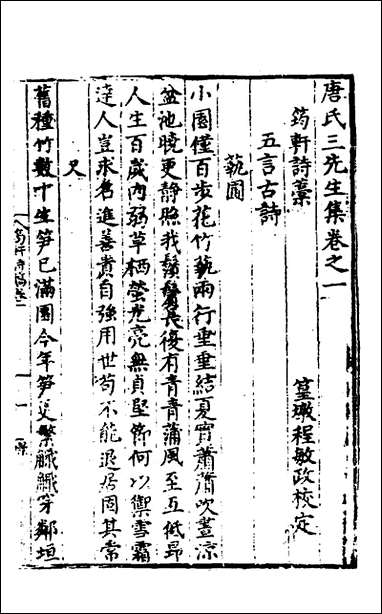 唐氏三先生集卷之一
筠軒詩稾　篁墩程敏政校定
五言古詩
蓺圃
小園僅百步花竹蓺兩行垂垂結夏實蕭蕭吹晝涼
盆池曉更静照我鬚鬢長復有青青蒲風至互低昂
人生百歲内弱草栖螢光亮無貞堅節何以禦雪霜
達人豈求售進善貴自強用世苟不能退居固其常
又
舊種竹數十生笋已滿園今年笋更繁觿觿穿鄰垣